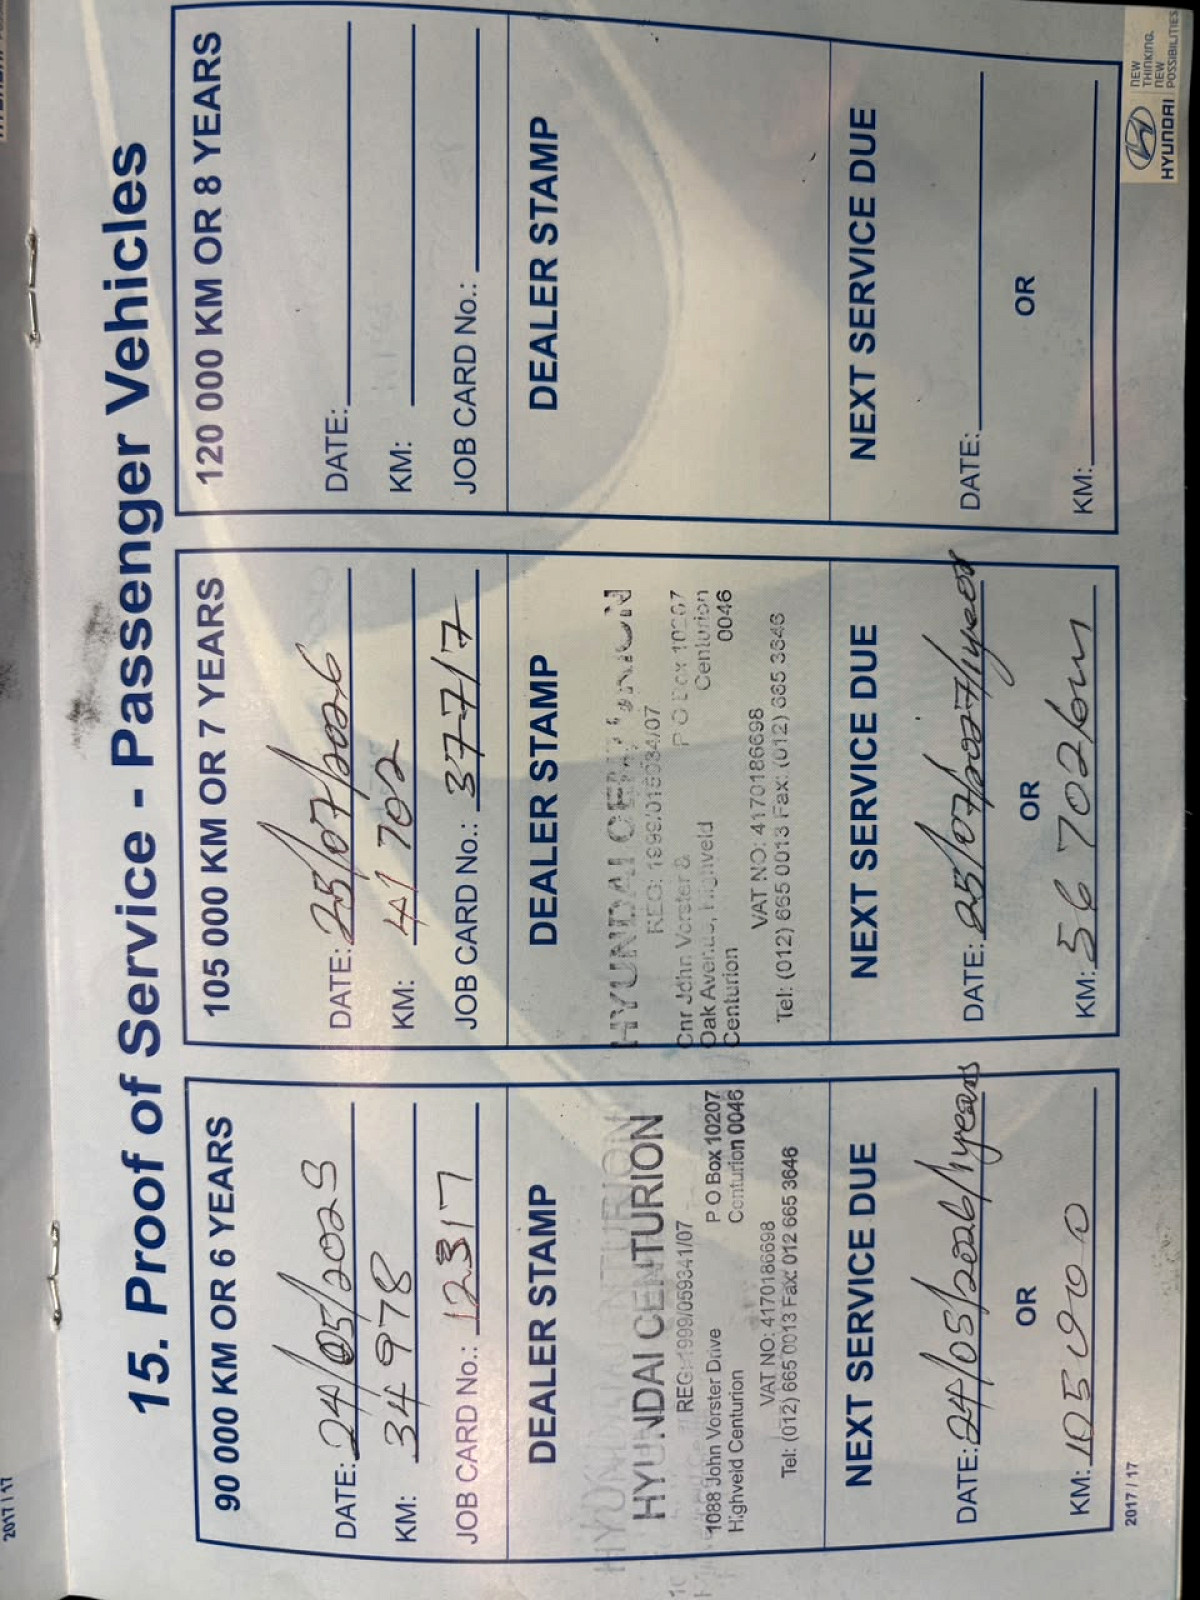 2017 / 17
15. Proof of Service - Passenger Vehicles
90 000 KM OR 6 YEARS
DATE: 24/05/2025
KM: 34 978
JOB CARD No.: 12317
DEALER STAMP
HYUNDAI CENTURION
REG: 1999/059341/07
1088 John Vorster Drive P O Box 10207
Highveld Centurion Centurion 0046
VAT NO: 4170186698
Tel: (012) 665 0013 Fax: 012 665 3646
NEXT SERVICE DUE
DATE: 24/05/2026/1years
OR
KM: 105 000
105 000 KM OR 7 YEARS
DATE: 25/07/2026
KM: 41 702
JOB CARD No.: 37717
DEALER STAMP
HYUNDAI CENTURION
REG: 1999/015934/07
Cnr John Vorster & P O Box 10207
Oak Avenue, Highveld Centurion
Centurion 0046
VAT NO: 4170186698
Tel: (012) 665 0013 Fax: (012) 665 3646
NEXT SERVICE DUE
DATE: 25/07/2027/1year
OR
KM: 56 702km
120 000 KM OR 8 YEARS
DATE:
KM:
JOB CARD No.:
DEALER STAMP
NEXT SERVICE DUE
DATE:
OR
KM:
2017 / 17
HYUNDAI
NEW
THINKING.
NEW
POSSIBILITIES